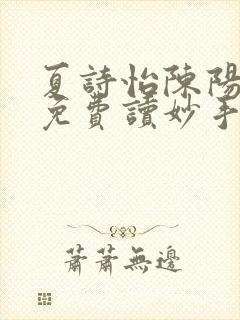 夏詩怡陳陽
免費讀妙手
蕭蕭無邊